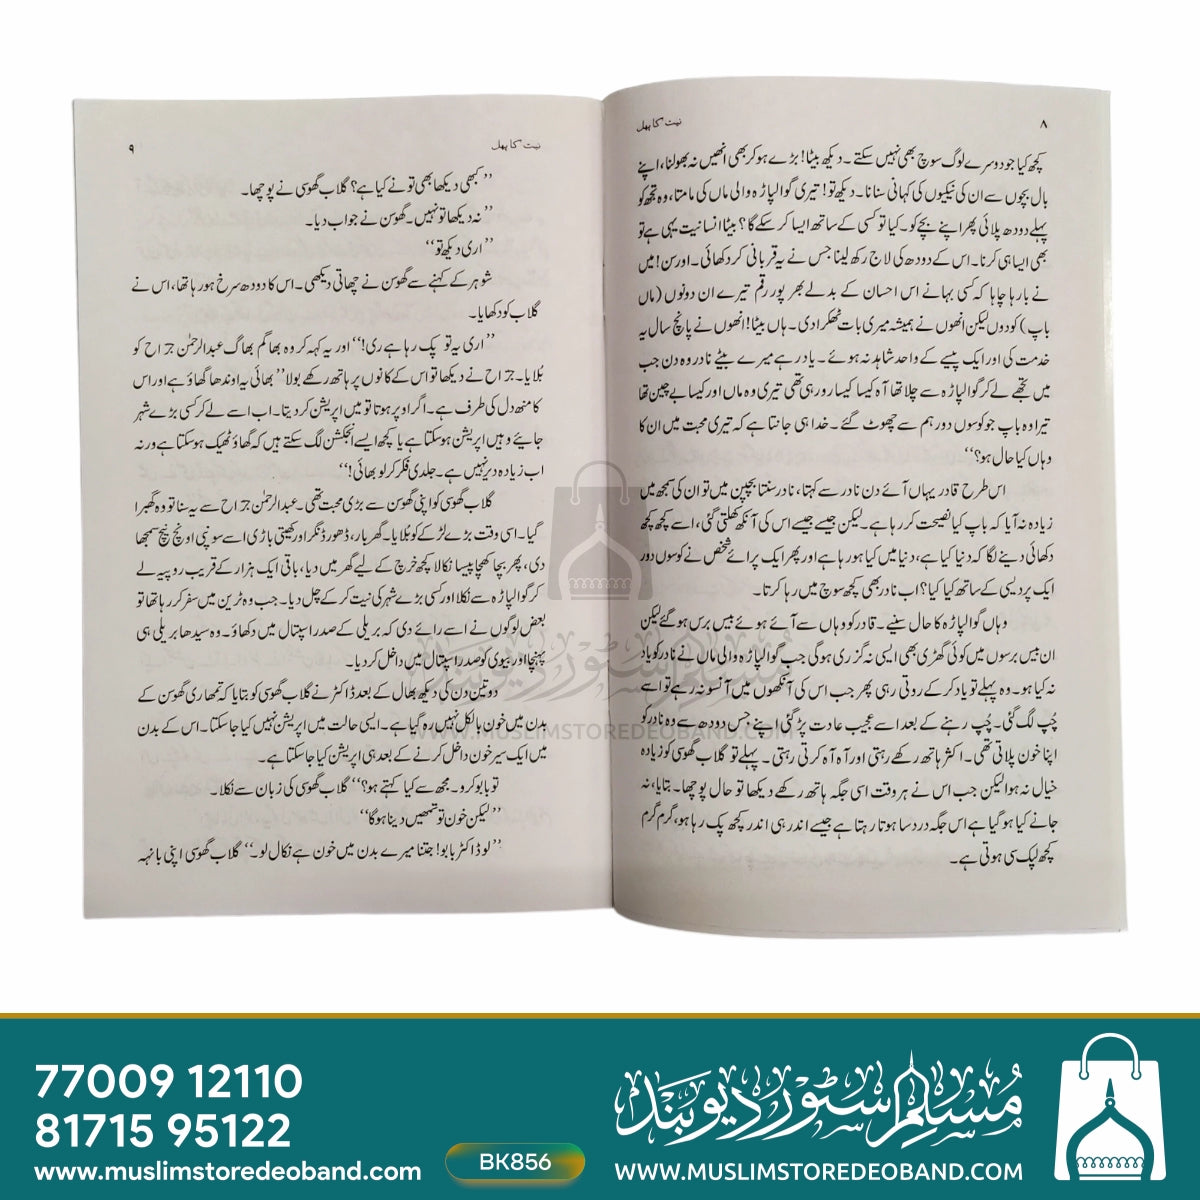 ۸
نیت کا پھل
کچھ کیا جو دوسرے لوگ سوچ بھی نہیں سکتے۔ دیکھ بیٹا! بڑے ہو کر بھی انھیں نہ بھولنا، اپنے
بال بچوں سے ان کی نیکیوں کی کہانی سنانا۔ دیکھ تو! تیری گوالپاڑہ والی ماں کی مامتا، وہ تجھ کو
پہلے دودھ پلاتی پھر اپنے بچے کو۔ کیا تو کسی کے ساتھ ایسا کر سکے گا؟ بیٹا انسانیت یہی ہے تو
بھی ایسا ہی کرنا۔ اس کے دودھ کی لاج رکھ لینا جس نے یہ قربانی کر دکھائی۔ اور سن! میں
نے بارہا چاہا کہ کسی بہانے اس احسان کے بدلے بھرپور رقم تیرے ان دونوں (ماں
باپ) کو دوں لیکن انھوں نے ہمیشہ میری بات ٹھکرا دی۔ ہاں بیٹا! انھوں نے پانچ سال یہ
خدمت کی اور ایک پیسے کے واحد شاہد نہ ہوئے۔ یاد رہے میرے بیٹے نادر وہ دن جب
میں تجھے لے کر گوالپاڑہ سے چلا تھا آہ کیسا کیسا رو رہی تھی تیری وہ ماں اور کیسا بے چین تھا
تیرا وہ باپ جو کوسوں دور ہم سے چھوٹ گئے۔ خدا ہی جانتا ہے کہ تیری محبت میں ان کا
وہاں کیا حال ہو؟‘‘
اس طرح قادر یہاں آئے دن نادر سے کہتا، نادر سنتا بچپن میں تو ان کی سمجھ میں
زیادہ نہ آیا کہ باپ کیا نصیحت کر رہا ہے۔ لیکن جیسے جیسے اس کی آنکھ کھلتی گئی، اسے کچھ کچھ
دکھائی دینے لگا کہ دنیا کیا ہے، دنیا میں کیا ہو رہا ہے اور پھر ایک پرائے شخص نے کوسوں دور
ایک پردیسی کے ساتھ کیا کیا؟ اب نادر بھی کچھ سوچ میں رہا کرتا۔
وہاں گوالپاڑہ کا حال سنیے۔ قادر کو وہاں سے آئے ہوئے بیس برس ہو گئے لیکن
ان بیس برسوں میں کوئی گھڑی بھی ایسی نہ گزری ہوگی جب گوالپاڑہ والی ماں نے نادر کو یاد
نہ کیا ہو۔ وہ پہلے تو یاد کر کے روتی رہی پھر جب اس کی آنکھوں میں آنسو نہ رہے تو اسے
چپ لگ گئی۔ چپ رہنے کے بعد اسے عجیب عادت پڑ گئی اپنے جس دودھ سے وہ نادر کو
اپنا خون پلاتی تھی۔ اکثر ہاتھ رکھے رہتی اور آہ آہ کرتی رہتی۔ پہلے تو گلاب گھوسی کو زیادہ
خیال نہ ہوا لیکن جب اس نے ہر وقت اسی جگہ ہاتھ رکھے دیکھا تو حال پوچھا۔ بتایا، نہ
جانے کیا ہو گیا ہے اس جگہ درد سا ہوتا رہتا ہے جیسے اندر ہی اندر کچھ پک رہا ہو، گرم گرم
کچھ لپک سی ہوتی ہے۔
نیت کا پھل
۹
’’کبھی دیکھا بھی تو نے کیا ہے؟ گلاب گھوسی نے پوچھا۔
’’نہ دیکھا تو نہیں۔ گھوسن نے جواب دیا۔
’’اری دیکھ تو‘‘
شوہر کے کہنے سے گھوسن نے چھاتی دیکھی۔ اس کا دودھ سرخ ہو رہا تھا، اس نے
گلاب کو دکھایا۔
’’اری یہ تو پک رہا ہے ری!‘‘ اور یہ کہہ کر وہ بھاگم بھاگ عبدالرحمٰن جراح کو
بُلا یا۔ جراح نے دیکھا تو اس کے کانوں پر ہاتھ رکھے بولا ’’بھائی یہ اوندھا گھاؤ ہے اور اس
کا منھ دل کی طرف ہے۔ اگر اوپر ہوتا تو میں اپریشن کر دیتا۔ اب اسے لے کر کسی بڑے شہر
جایئے وہیں اپریشن ہو سکتا ہے یا کچھ ایسے انجکشن لگ سکتے ہیں کہ گھاؤ ٹھیک ہو سکتا ہے ورنہ
اب زیادہ دیر نہیں ہے۔ جلدی فکر کر لو بھائی!‘‘
گلاب گھوسی کو اپنی گھوسن سے بڑی محبت تھی۔ عبدالرحمٰن جراح سے یہ سنا تو وہ گھبرا
گیا۔ اسی وقت بڑے لڑکے کو بُلایا۔ گھر بار، ڈھور ڈنگر اور کھیتی باڑی اسے سونپی اونچ نیچ سمجھا
دی، پھر بچا کھچا پیسا نکالا کچھ خرچ کے لیے گھر میں دیا، باقی ایک ہزار کے قریب روپیہ لے
کر گوالپاڑہ سے نکلا اور کسی بڑے شہر کی نیت کر کے چل دیا۔ جب وہ ٹرین میں سفر کر رہا تھا تو
بعض لوگوں نے اسے رائے دی کہ بریلی کے صدر اسپتال میں دکھاؤ۔ وہ سیدھا بریلی ہی
پہنچا اور بیوی کو صدر اسپتال میں داخل کر دیا۔
دو تین دن کی دیکھ بھال کے بعد ڈاکٹر نے گلاب گھوسی کو بتایا کہ تمھاری گھوسن کے
بدن میں خون بالکل نہیں رہ گیا ہے۔ ایسی حالت میں اپریشن نہیں کیا جا سکتا۔ اس کے بدن
میں ایک سیر خون داخل کرنے کے بعد ہی اپریشن کیا جا سکتا ہے۔
تو بابو کرو۔ مجھ سے کیا کہتے ہو؟‘‘ گلاب گھوسی کی زبان سے نکلا۔
’’لیکن خون تو تمھیں دینا ہوگا‘‘
’’لو ڈاکٹر بابو! جتنا میرے بدن میں خون ہے نکال لو۔‘‘ گلاب گھوسی اپنی بانہہ
مسلم سٹور دیوبند
WWW.MUSLIMSTOREDEOBAND.COM
77009 12110
81715 95122
www.muslimstoredeoband.com
BK856
مسلم سٹور دیوبند
WWW.MUSLIMSTOREDEOBAND.COM